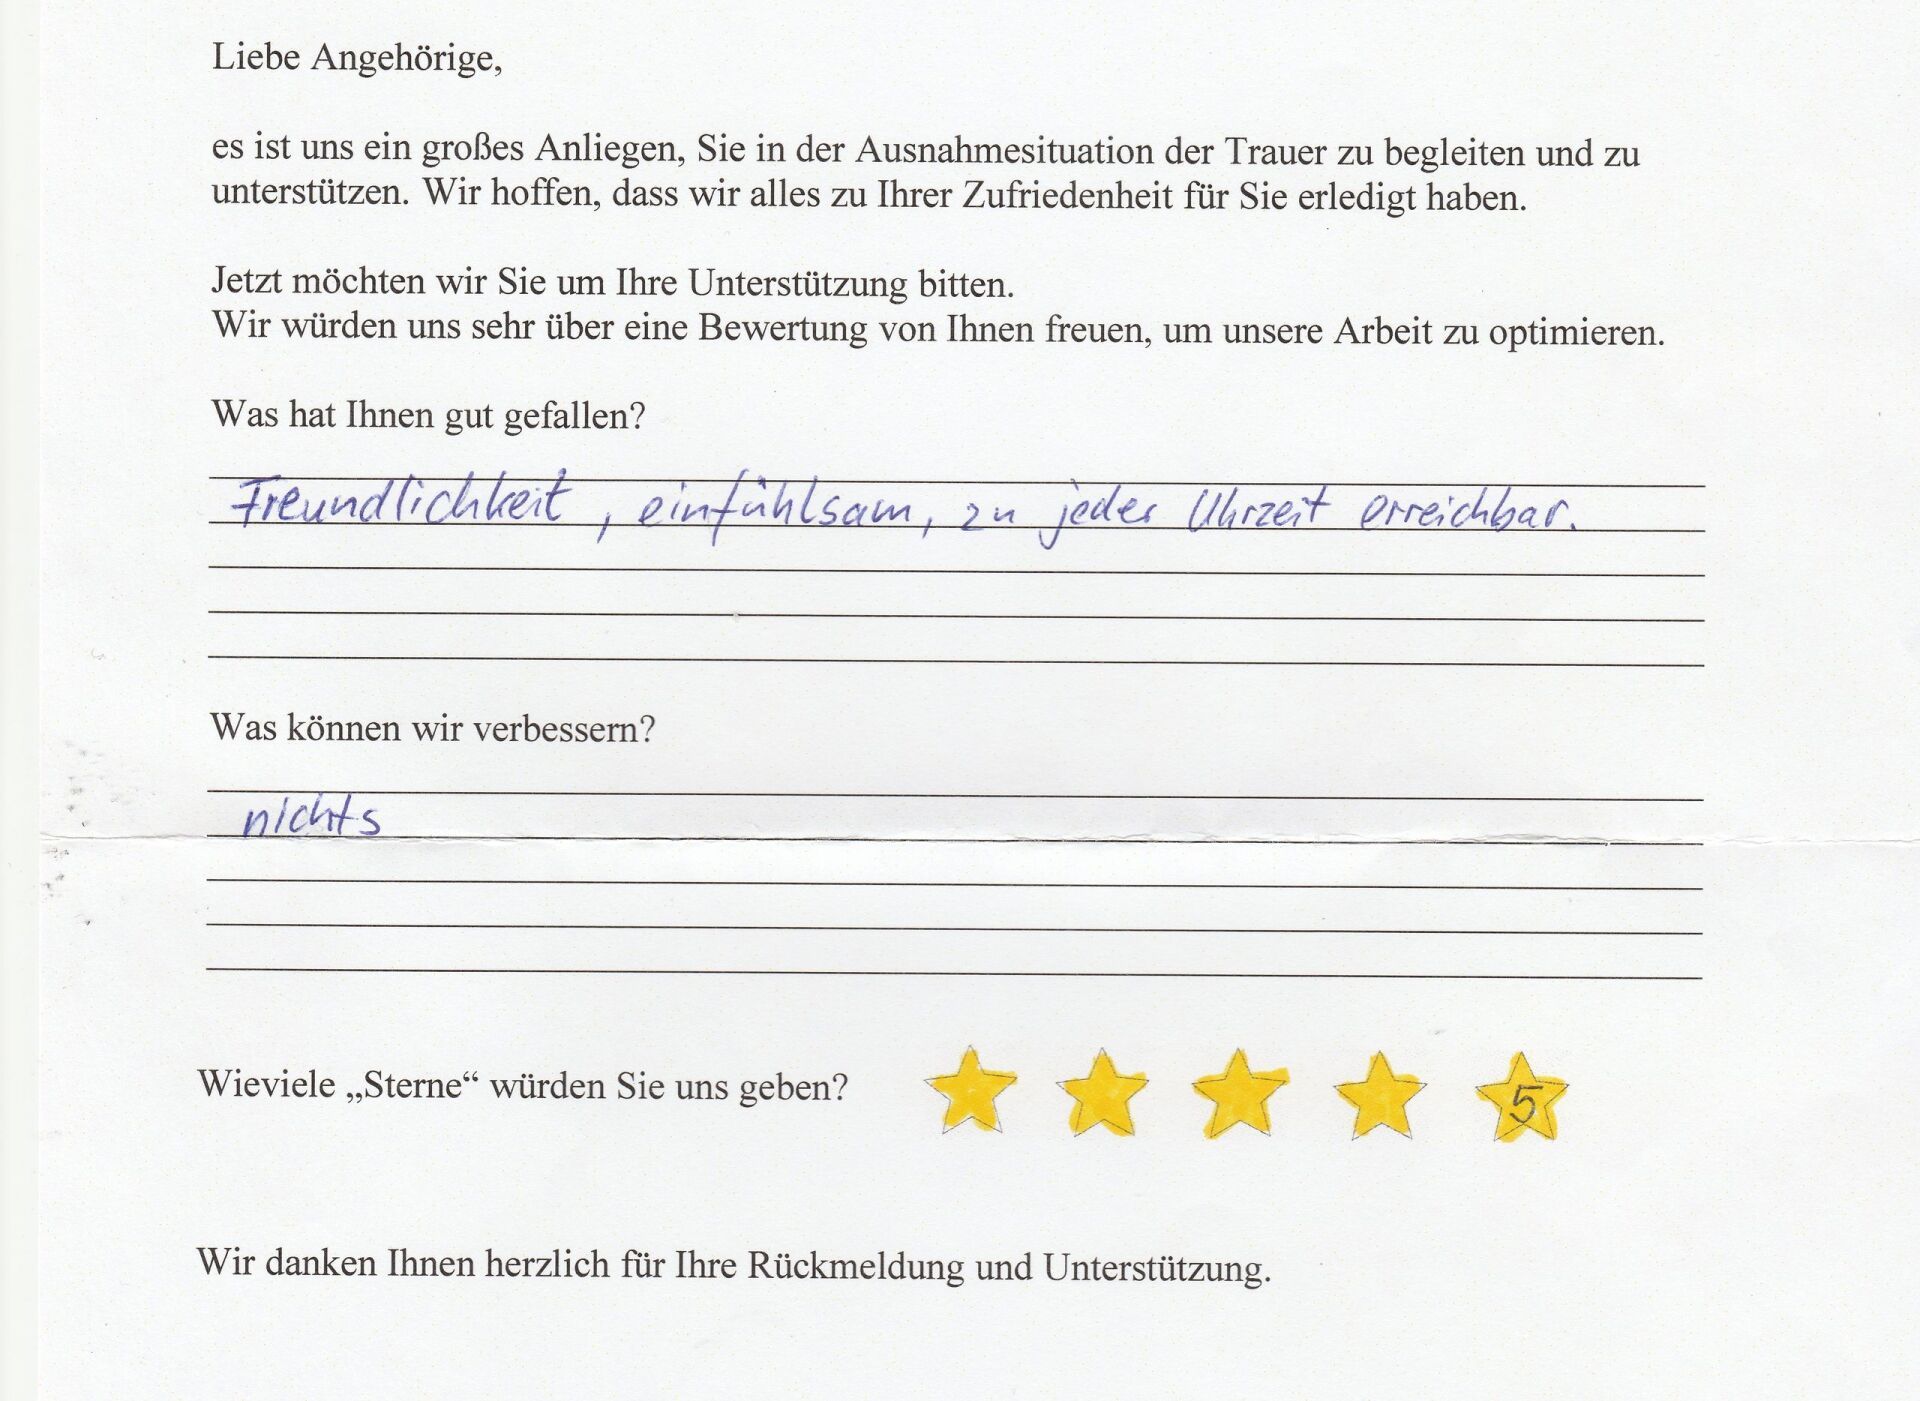 Liebe Angehörige,
es ist uns ein großes Anliegen, Sie in der Ausnahmesituation der Trauer zu begleiten und zu
unterstützen. Wir hoffen, dass wir alles zu Ihrer Zufriedenheit für Sie erledigt haben.
Jetzt möchten wir Sie um Ihre Unterstützung bitten.
Wir würden uns sehr über eine Bewertung von Ihnen freuen, um unsere Arbeit zu optimieren.
Was hat Ihnen gut gefallen?
Freundlichkeit, einfühlsam, zu jeder Uhrzeit erreichbar.
Was können wir verbessern?
nichts
Wieviele „Sterne“ würden Sie uns geben? 5
Wir danken Ihnen herzlich für Ihre Rückmeldung und Unterstützung.